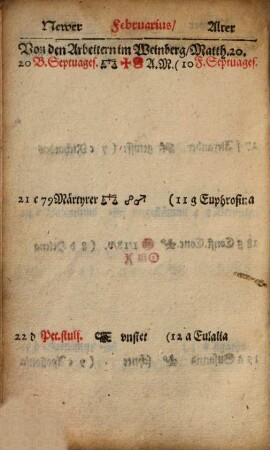 Newer Februarius/ Alter
Von den Arbeitern im Weinberg/Matth.20.
20 B. Septuages. ♎ A.M. (10 F. Septuages.
21 c 79 Märtyrer ♎ ☍♂ (11 g Euphrosina
22 d Pet. stulf. vnstet (12 a Eulalia